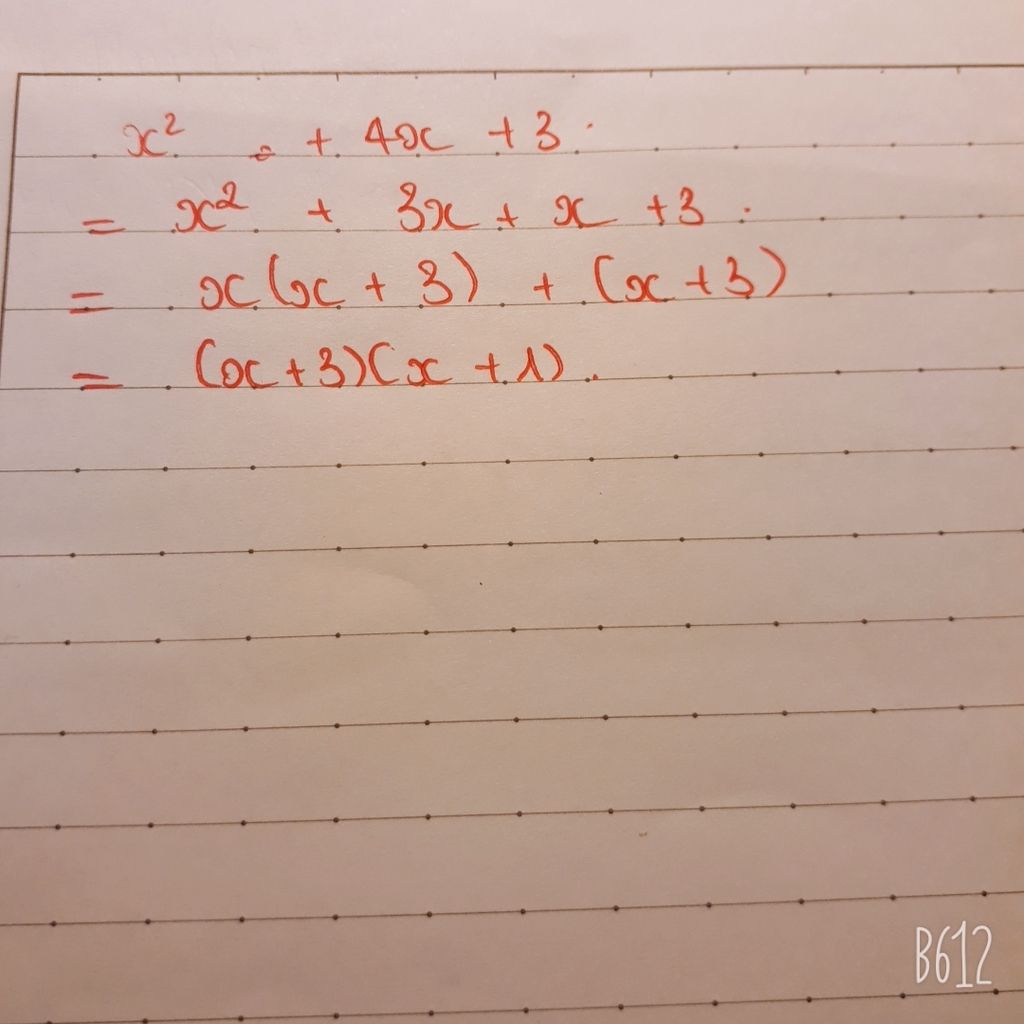 x² + 4x + 3.
= x² + 3x + x + 3.
= x(x + 3) + (x + 3)
= (x + 3)(x + 1).
B612